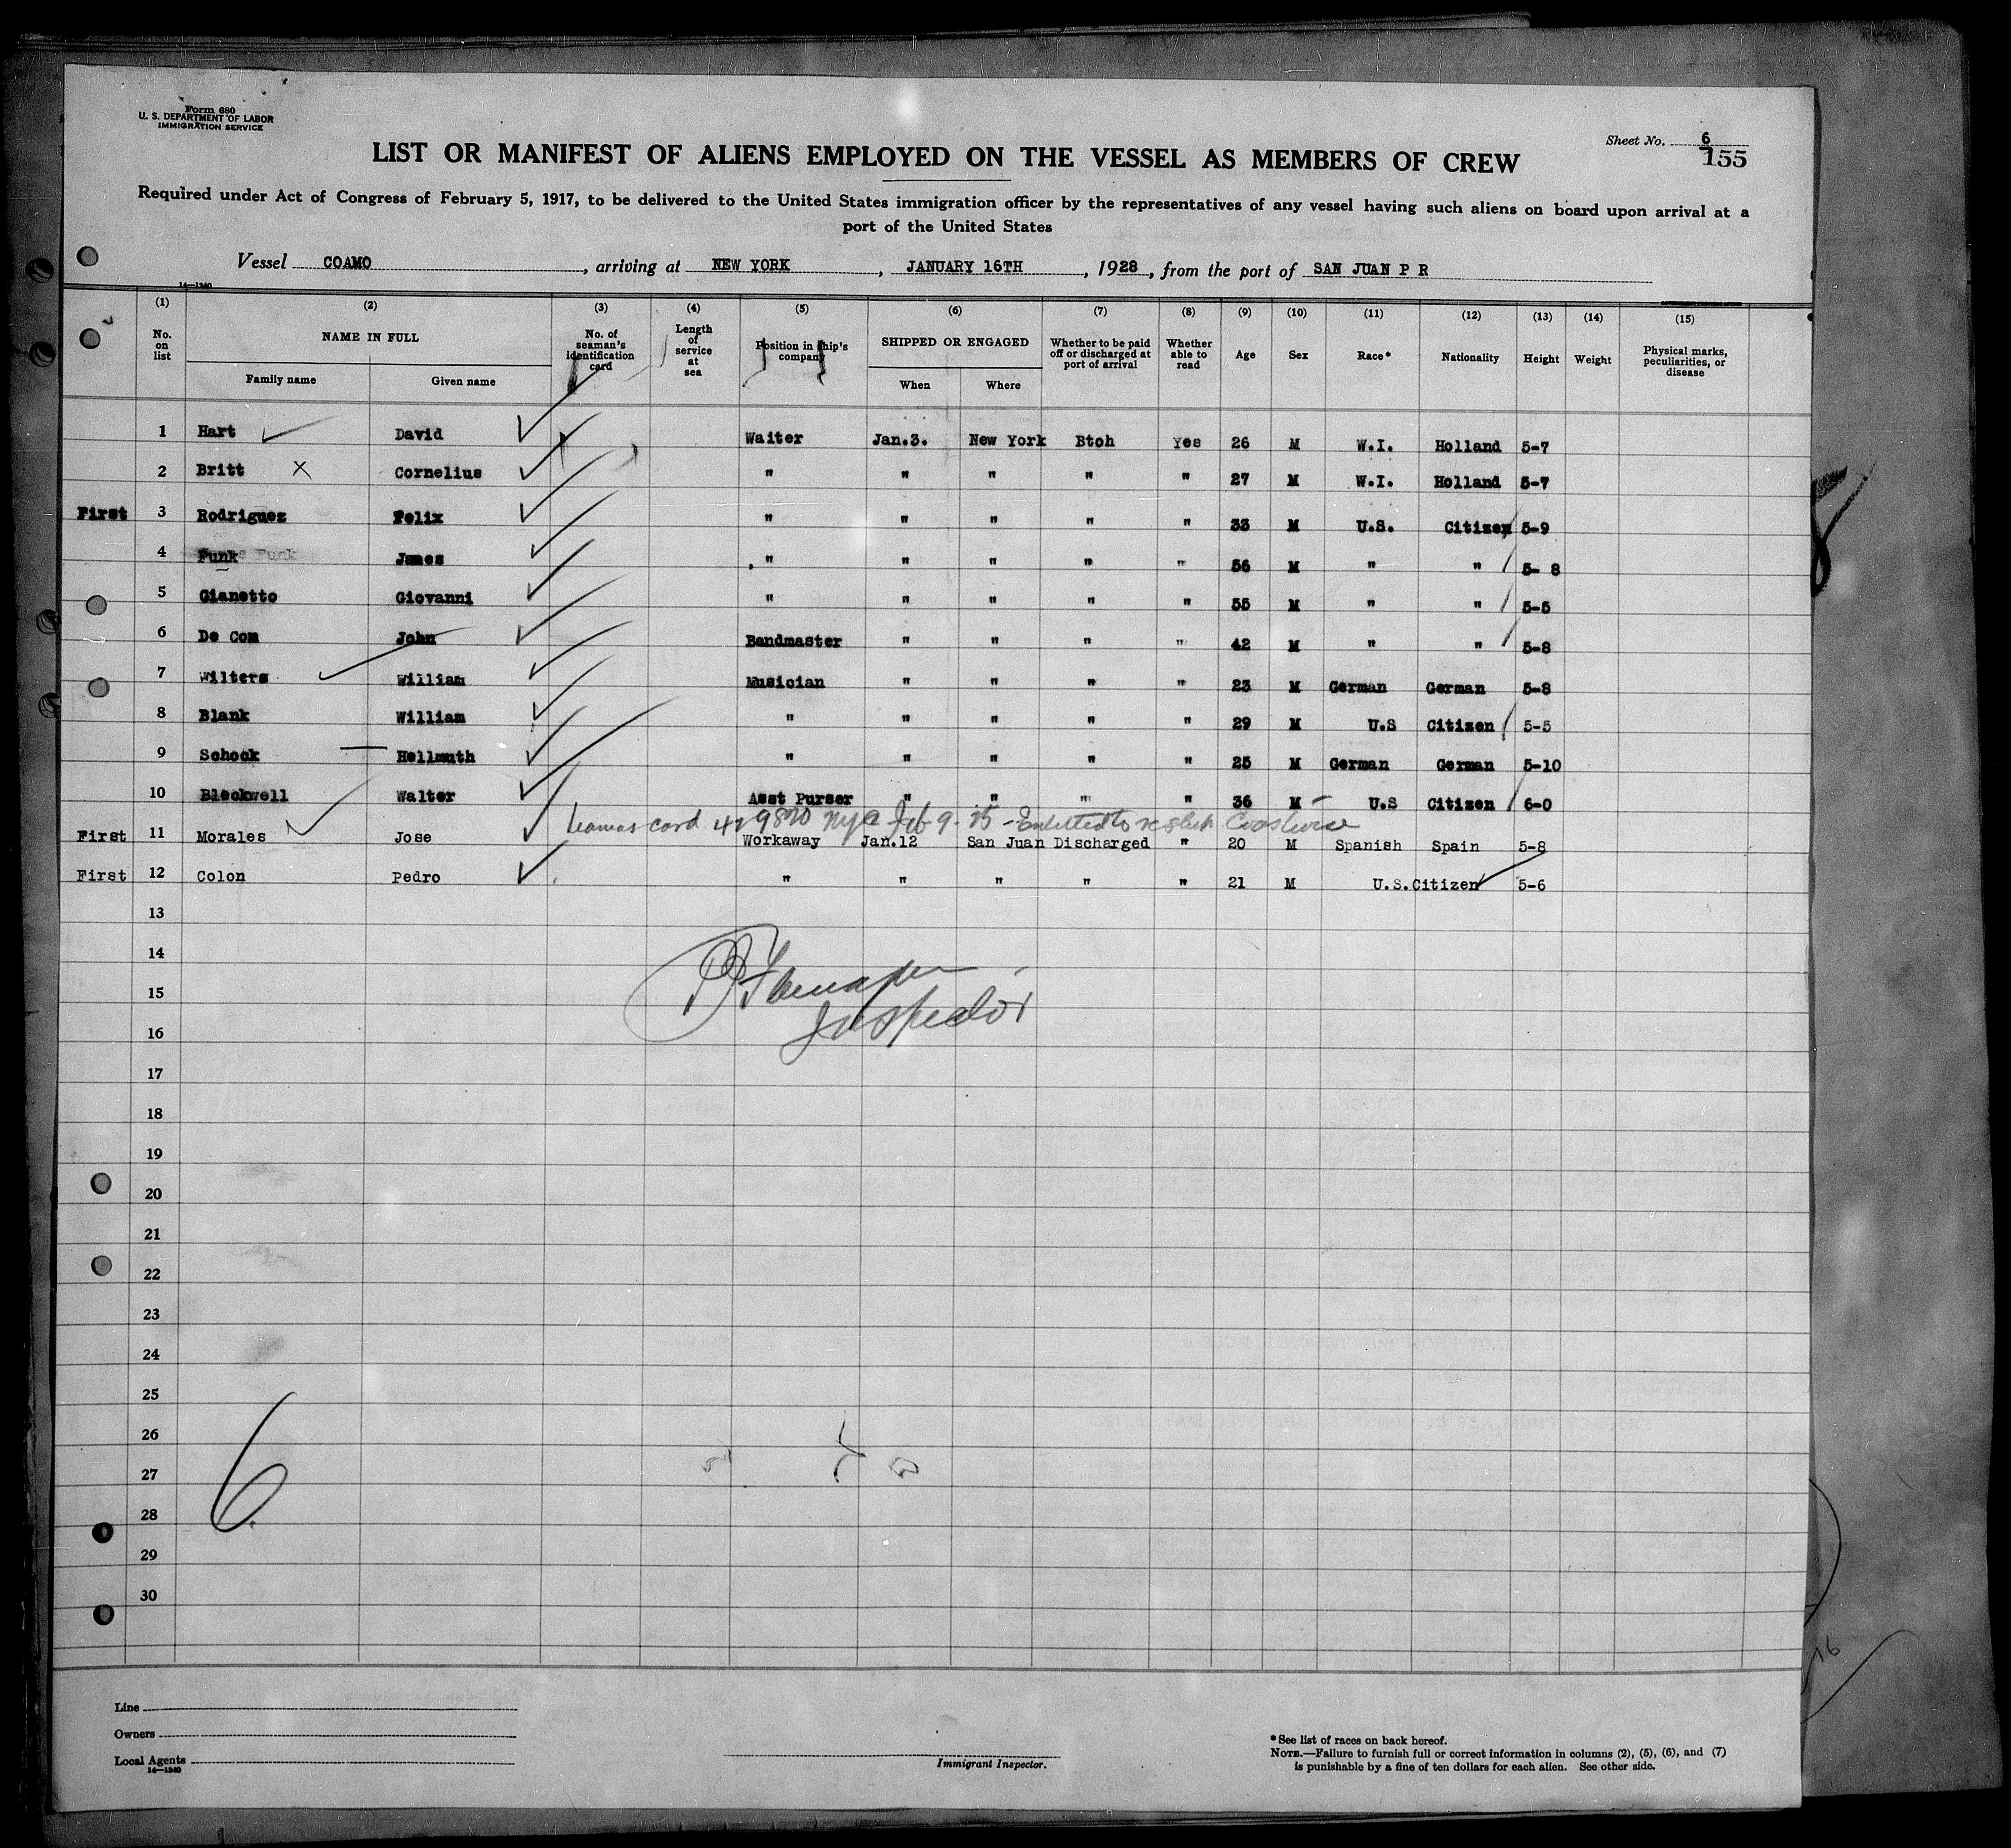 Form 680
U. S. DEPARTMENT OF LABOR
IMMIGRATION SERVICE
Sheet No. 6
155
LIST OR MANIFEST OF ALIENS EMPLOYED ON THE VESSEL AS MEMBERS OF CREW
Required under Act of Congress of February 5, 1917, to be delivered to the United States immigration officer by the representatives of any vessel having such aliens on board upon arrival at a
port of the United States
Vessel COAMO, arriving at NEW YORK, JANUARY 16TH, 1928, from the port of SAN JUAN P R
14—1240
(1) (2) (3) (4) (5) (6) (7) (8) (9) (10) (11) (12) (13) (14) (15)
No. on list NAME IN FULL Family name Given name No. of seaman's identification card Length of service at sea Position in ship's company SHIPPED OR ENGAGED When Where Whether to be paid off or discharged at port of arrival Whether able to read Age Sex Race* Nationality Height Weight Physical marks, peculiarities, or disease
1 Hart David Waiter Jan.3. New York Btoh Yes 26 M W.I. Holland 5-7
2 Britt X Cornelius " " " " " 27 M W.I. Holland 5-7
First 3 Rodriguez Felix " " " " " 33 M U.S. Citizen 5-9
4 Funk Funk James " " " " " 56 M " " 5- 8
5 Gianetto Giovanni " " " " " 55 M " " 5-5
6 De Com John Bandmaster " " " " 42 M " " 5-8
7 Wilters William Musician " " " " 23 M German German 5-8
8 Blank William " " " " " 29 M U.S Citizen 5-5
9 Schock Hellmuth " " " " " 25 M German German 5-10
10 Bleckwell Walter Asst Purser " " " " 36 M U.S Citizen 6-0
card Feb 9 - 25 - Entitled to Coastwise
First 11 Morales Jose Workaway Jan.12 San Juan Discharged " 20 M Spanish Spain 5-8
First 12 Colon Pedro " " " " " 21 M U.S.Citizen 5-6
13
14
15
Inspector
16
17
18
19
20
21
22
23
24
25
26
27
28
29
30
6
16
Line
Owners
Local Agents
14—1240
Immigrant Inspector.
*See list of races on back hereof.
NOTE.—Failure to furnish full or correct information in columns (2), (5), (6), and (7)
is punishable by a fine of ten dollars for each alien. See other side.